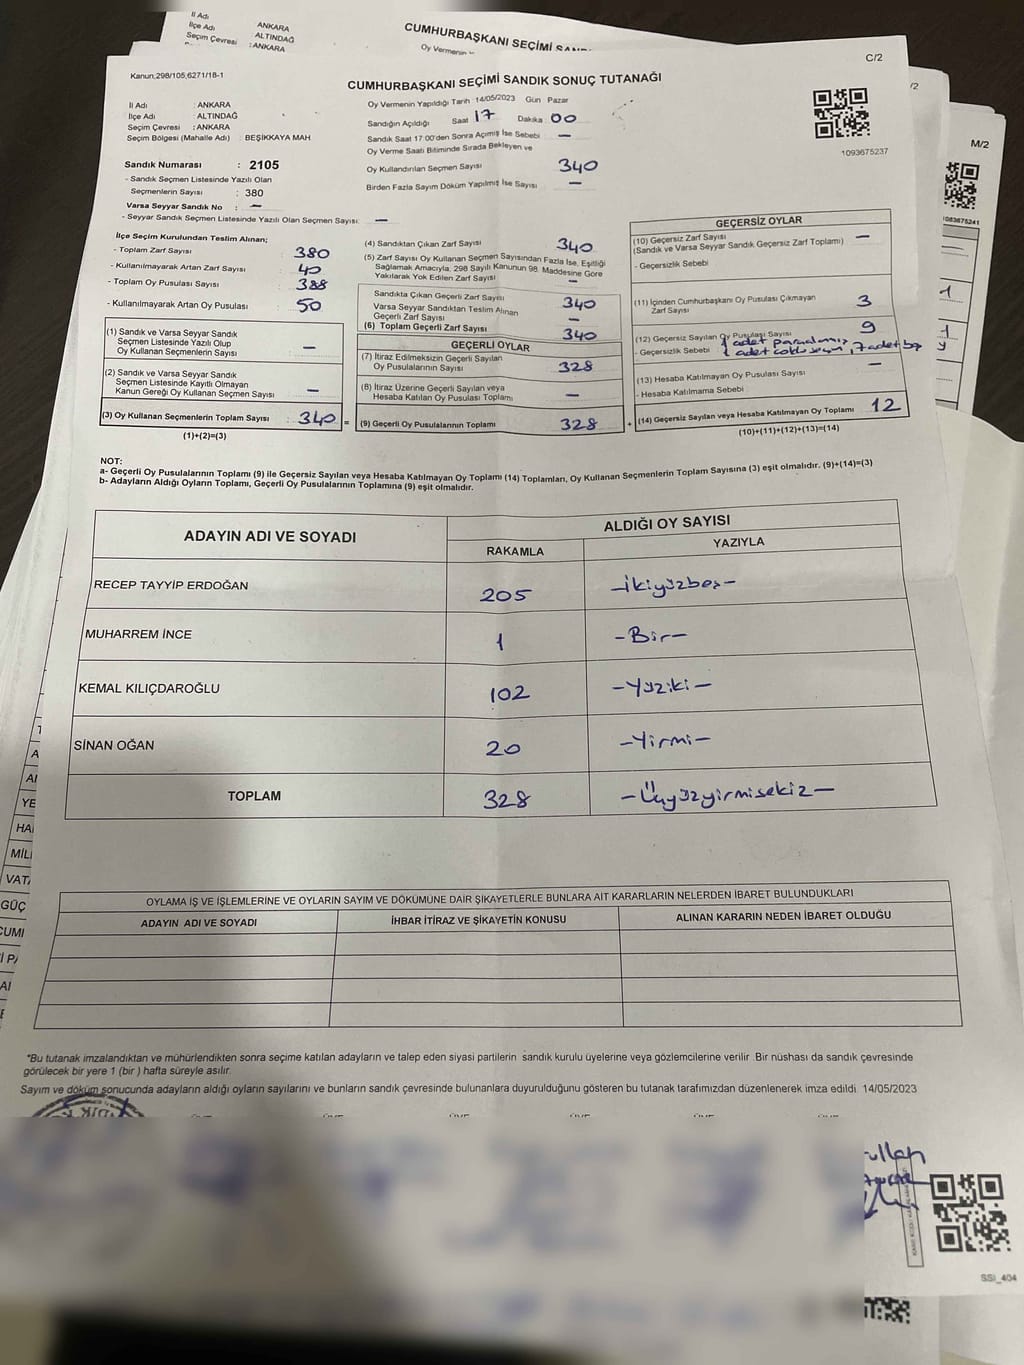 İl Adı
İlçe Adı ANKARA
Seçim Çevresi ALTINDAĞ
:ANKARA
CUMHURBAŞKANI SEÇİMİ
Oy Vermenin
C/2
/2
M/2
1083675241
Kanun,298/105,6271/18-1
CUMHURBAŞKANI SEÇİMİ SANDIK SONUÇ TUTANAĞI
İl Adı : ANKARA
İlçe Adı : ALTINDAĞ
Seçim Çevresi : ANKARA
Seçim Bölgesi (Mahalle Adı) : BEŞİKKAYA MAH
Sandık Numarası : 2105
- Sandık Seçmen Listesinde Yazılı Olan
Seçmenlerin Sayısı : 380
Varsa Seyyar Sandık No : —
- Seyyar Sandık Seçmen Listesinde Yazılı Olan Seçmen Sayısı: —
Oy Vermenin Yapıldığı Tarih : 14/05/2023 Gün : Pazar
Sandığın Açıldığı Saat 17 Dakika 00
Sandık Saat 17:00'den Sonra Açımış İse Sebebi —
Oy Verme Saati Bitiminde Sırada Bekleyen ve
Oy Kullandırılan Seçmen Sayısı 340
Birden Fazla Sayım Döküm Yapılmış İse Sayısı : —
1093675237
İlçe Seçim Kurulundan Teslim Alınan;
- Toplam Zarf Sayısı : 380
- Kullanılmayarak Artan Zarf Sayısı : 40
- Toplam Oy Pusulası Sayısı : 388
- Kullanılmayarak Artan Oy Pusulası : 50
(1) Sandık ve Varsa Seyyar Sandık
Seçmen Listesinde Yazılı Olup
Oy Kullanan Seçmenlerin Sayısı : —
(2) Sandık ve Varsa Seyyar Sandık
Seçmen Listesinde Kayıtlı Olmayan
Kanun Gereği Oy Kullanan Seçmen Sayısı : —
(3) Oy Kullanan Seçmenlerin Toplam Sayısı : 340 =
(1)+(2)=(3)
(4) Sandıktan Çıkan Zarf Sayısı 340
(5) Zarf Sayısı Oy Kullanan Seçmen Sayısından Fazla İse, Eşitliği
Sağlamak Amacıyla, 298 Sayılı Kanunun 98. Maddesine Göre
Yakılarak Yok Edilen Zarf Sayısı —
Sandıkta Çıkan Geçerli Zarf Sayısı 340
Varsa Seyyar Sandıktan Teslim Alınan
Geçerli Zarf Sayısı —
(6) Toplam Geçerli Zarf Sayısı 340
GEÇERLİ OYLAR
(7) İtiraz Edilmeksizin Geçerli Sayılan
Oy Pusulalarının Sayısı : 328
(8) İtiraz Üzerine Geçerli Sayılan veya
Hesaba Katılan Oy Pusulası Toplamı : —
(9) Geçerli Oy Pusulalarının Toplamı : 328 +
GEÇERSİZ OYLAR
(10) Geçersiz Zarf Sayısı
(Sandık ve Varsa Seyyar Sandık Geçersiz Zarf Toplamı) —
- Geçersizlik Sebebi
(11) İçinden Cumhurbaşkanı Oy Pusulası Çıkmayan
Zarf Sayısı 3
(12) Geçersiz Sayılan Oy Pusulası Sayısı 9
- Geçersizlik Sebebi 1 adet
1 adet 7 adet
(13) Hesaba Katılmayan Oy Pusulası Sayısı —
- Hesaba Katılmama Sebebi
(14) Geçersiz Sayılan veya Hesaba Katılmayan Oy Toplamı : 12
(10)+(11)+(12)+(13)=(14)
NOT:
a- Geçerli Oy Pusulalarının Toplamı (9) ile Geçersiz Sayılan veya Hesaba Katılmayan Oy Toplamı (14) Toplamları, Oy Kullanan Seçmenlerin Toplam Sayısına (3) eşit olmalıdır. (9)+(14)=(3)
b- Adayların Aldığı Oyların Toplamı, Geçerli Oy Pusulalarının Toplamına (9) eşit olmalıdır.
ADAYIN ADI VE SOYADI ALDIĞI OY SAYISI
RAKAMLA YAZIYLA
RECEP TAYYİP ERDOĞAN 205 -İkiyüzbeş-
MUHARREM İNCE 1 -Bir-
KEMAL KILIÇDAROĞLU 102 -Yüziki-
SİNAN OĞAN 20 -Yirmi-
TOPLAM 328 -Üçyüzyirmisekiz-
OYLAMA İŞ VE İŞLEMLERİNE VE OYLARIN SAYIM VE DÖKÜMÜNE DAİR ŞİKAYETLERLE BUNLARA AİT KARARLARIN NELERDEN İBARET BULUNDUKLARI
ADAYIN ADI VE SOYADI İHBAR İTİRAZ VE ŞİKAYETİN KONUSU ALINAN KARARIN NEDEN İBARET OLDUĞU
*Bu tutanak imzalandıktan ve mühürlendikten sonra seçime katılan adayların ve talep eden siyasi partilerin sandık kurulu üyelerine veya gözlemcilerine verilir. Bir nüshası da sandık çevresinde
görülecek bir yere 1 (bir ) hafta süreyle asılır.
Sayım ve döküm sonucunda adayların aldığı oyların sayılarını ve bunların sandık çevresinde bulunanlara duyurulduğunu gösteren bu tutanak tarafımızdan düzenlenerek imza edildi. 14/05/2023
SSI_404